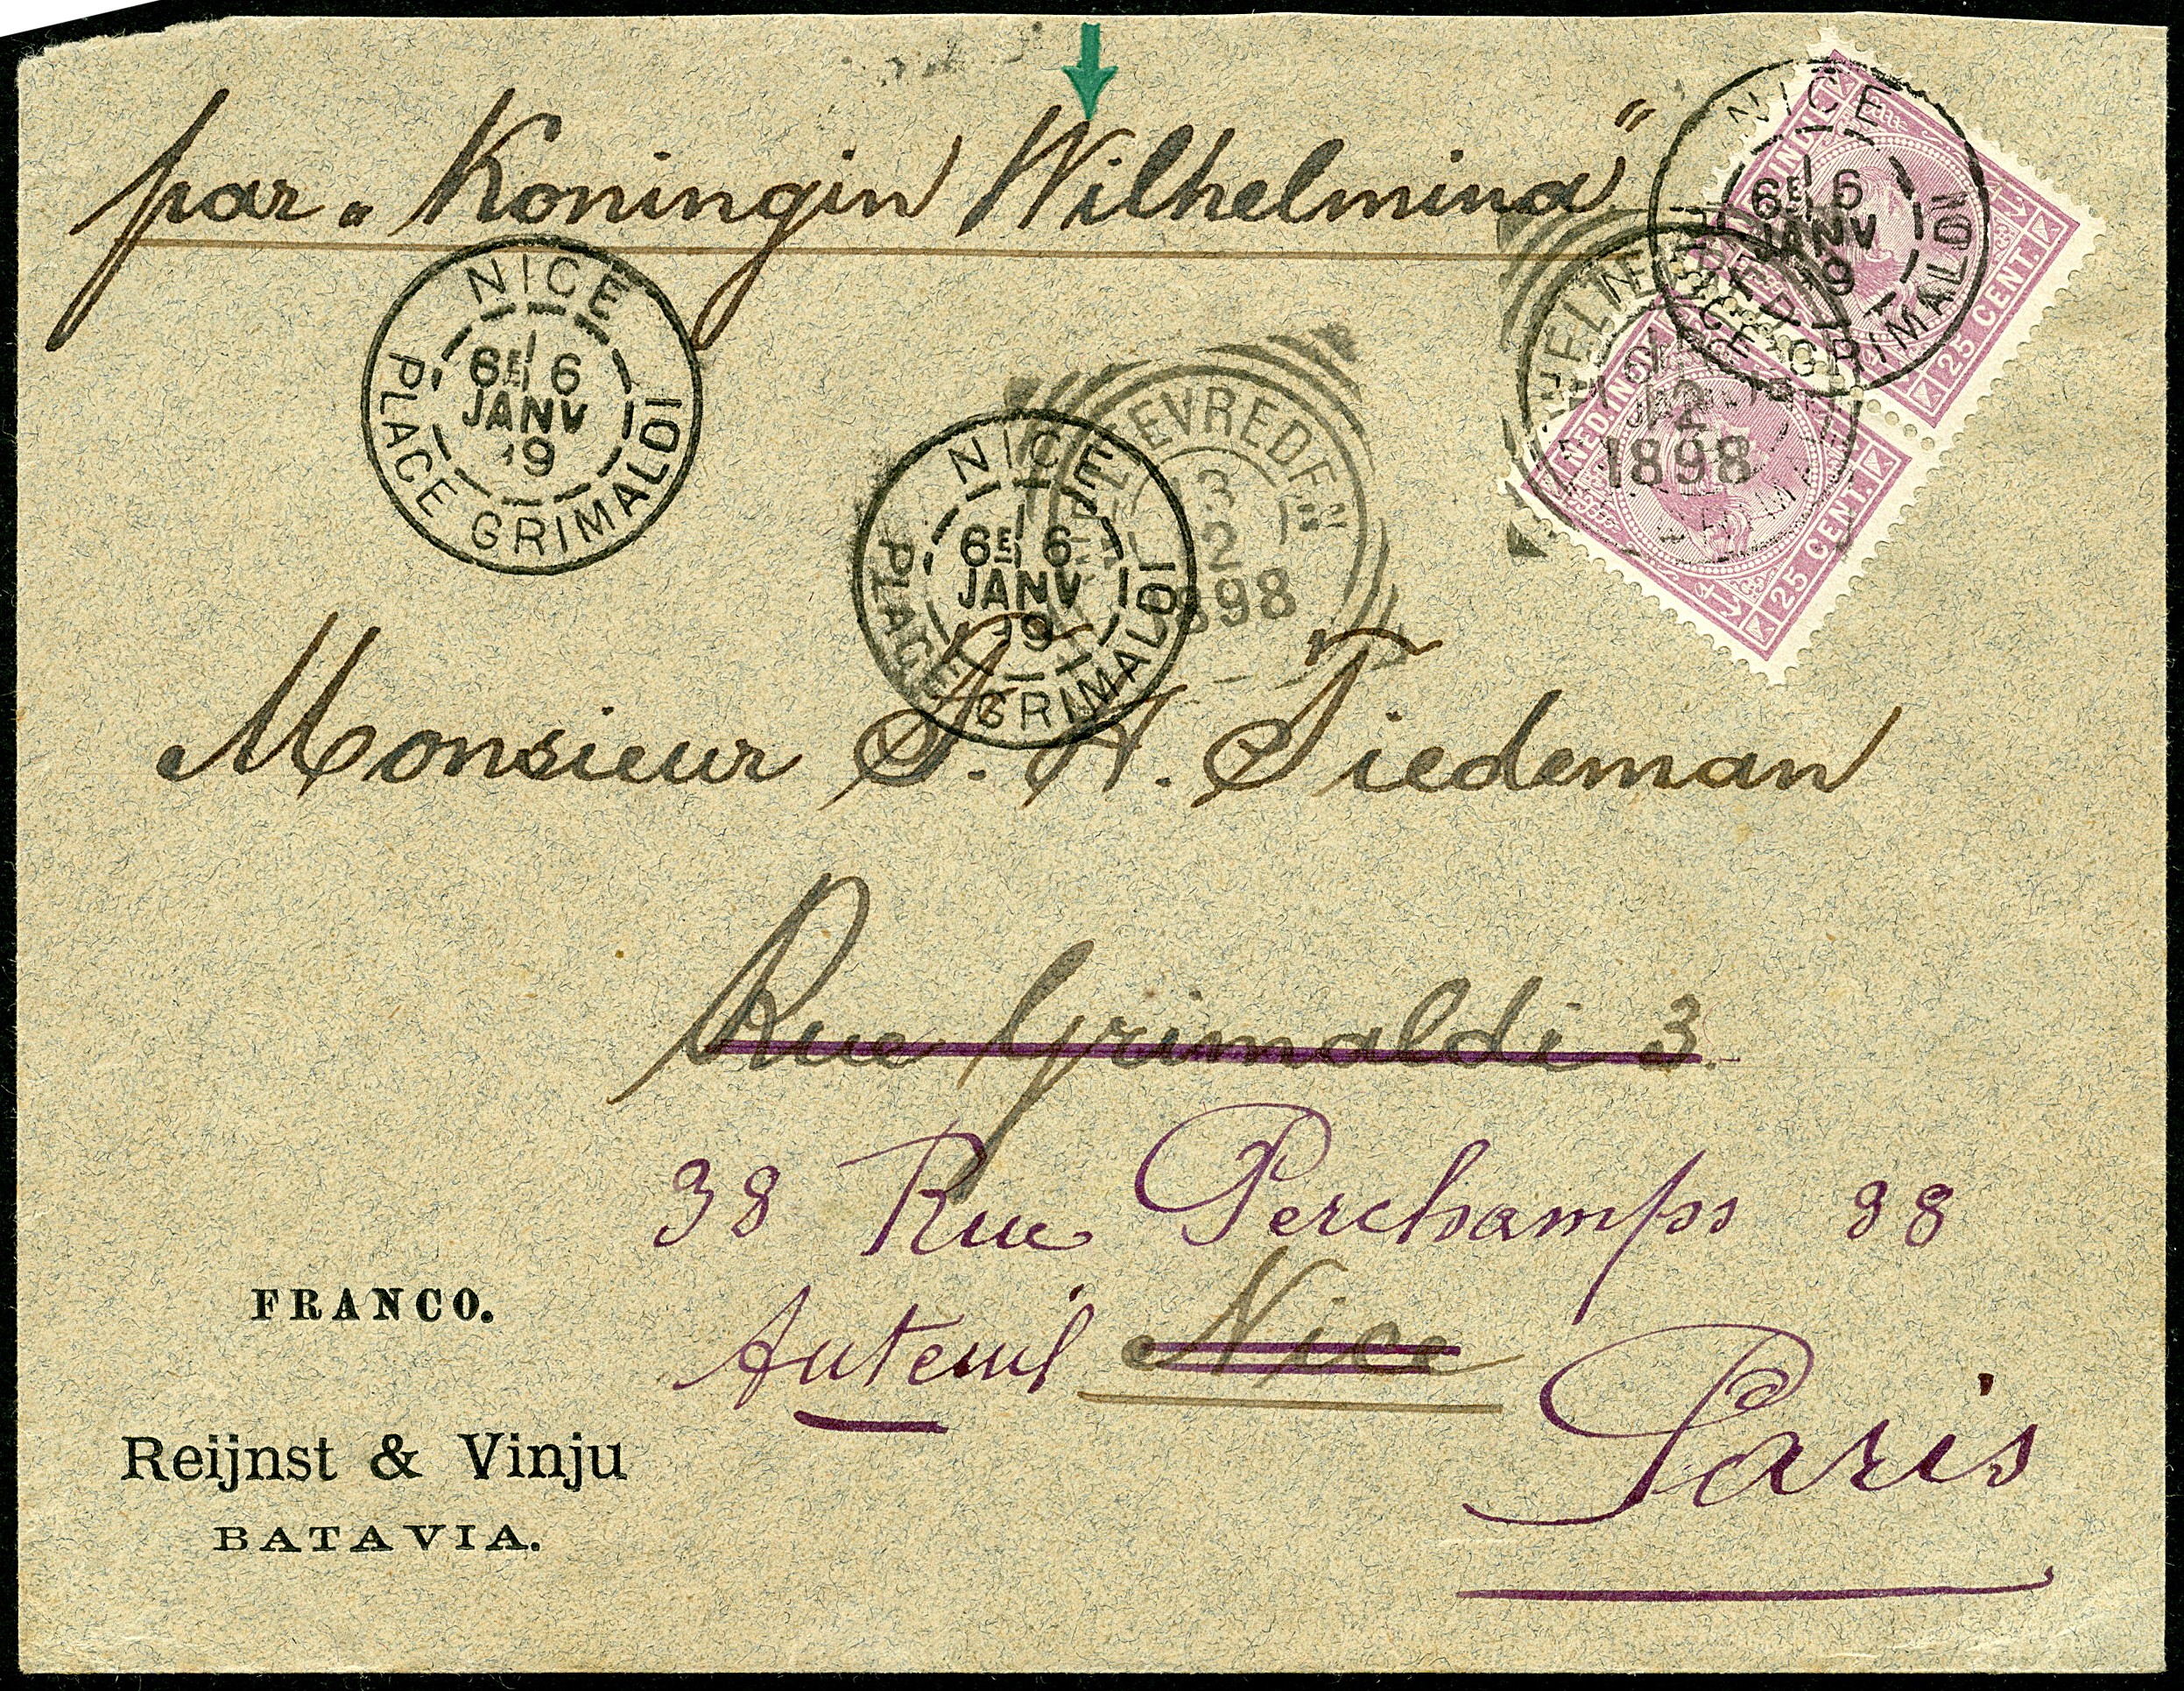 par „Koningin Wilhelmina"
NICE
6E 6
JANV
PLACE GRIMALDI
NICE
6E 6
JANV
PLACE GRIMALDI
3
12
1898
NICE
6E 6
JANV
GRIMALDI
12
1898
NED. INDIE
25 CENT.
25 CENT.
Monsieur T. H. Tiedeman
Rue Grimaldi 3.
38 Rue Perchamps 38
Auteuil Nice
Paris
FRANCO.
Reijnst & Vinju
BATAVIA.